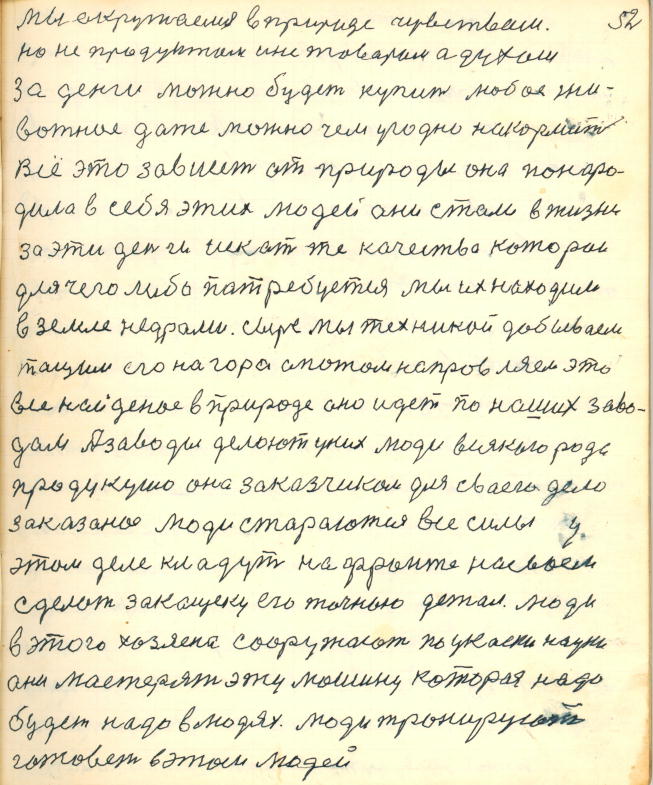 52
мы окружаемся в природе чувствам.
но не продуктом и не товаром а духом
За денги можно будет купит любое жи-
вотное даже можно чем угодно накормит
Всё это зависит от природы она понаро-
дила в себя этих людей они стали в жизни
за эти денги искат те качества которои
для чего либо патребуется мы их находим
в земле недрами. Сырё мы техникой добываем
тащим его на гора а потом напровляем это
все найденое в природе оно идет по нашим заво-
дам А заводы делоют у них люди всякого рода
продукцию она заказчиком для сваего дело
заказаное люди стараются все силы у
этом деле кладут на фронте насвоем
сделат закащеку его точною детал. люди
в этого хозяена сооружают по указки науки
они мастерят эту мошину которая надо
будет надо в людях. люди тронируют
готовет в этом людей